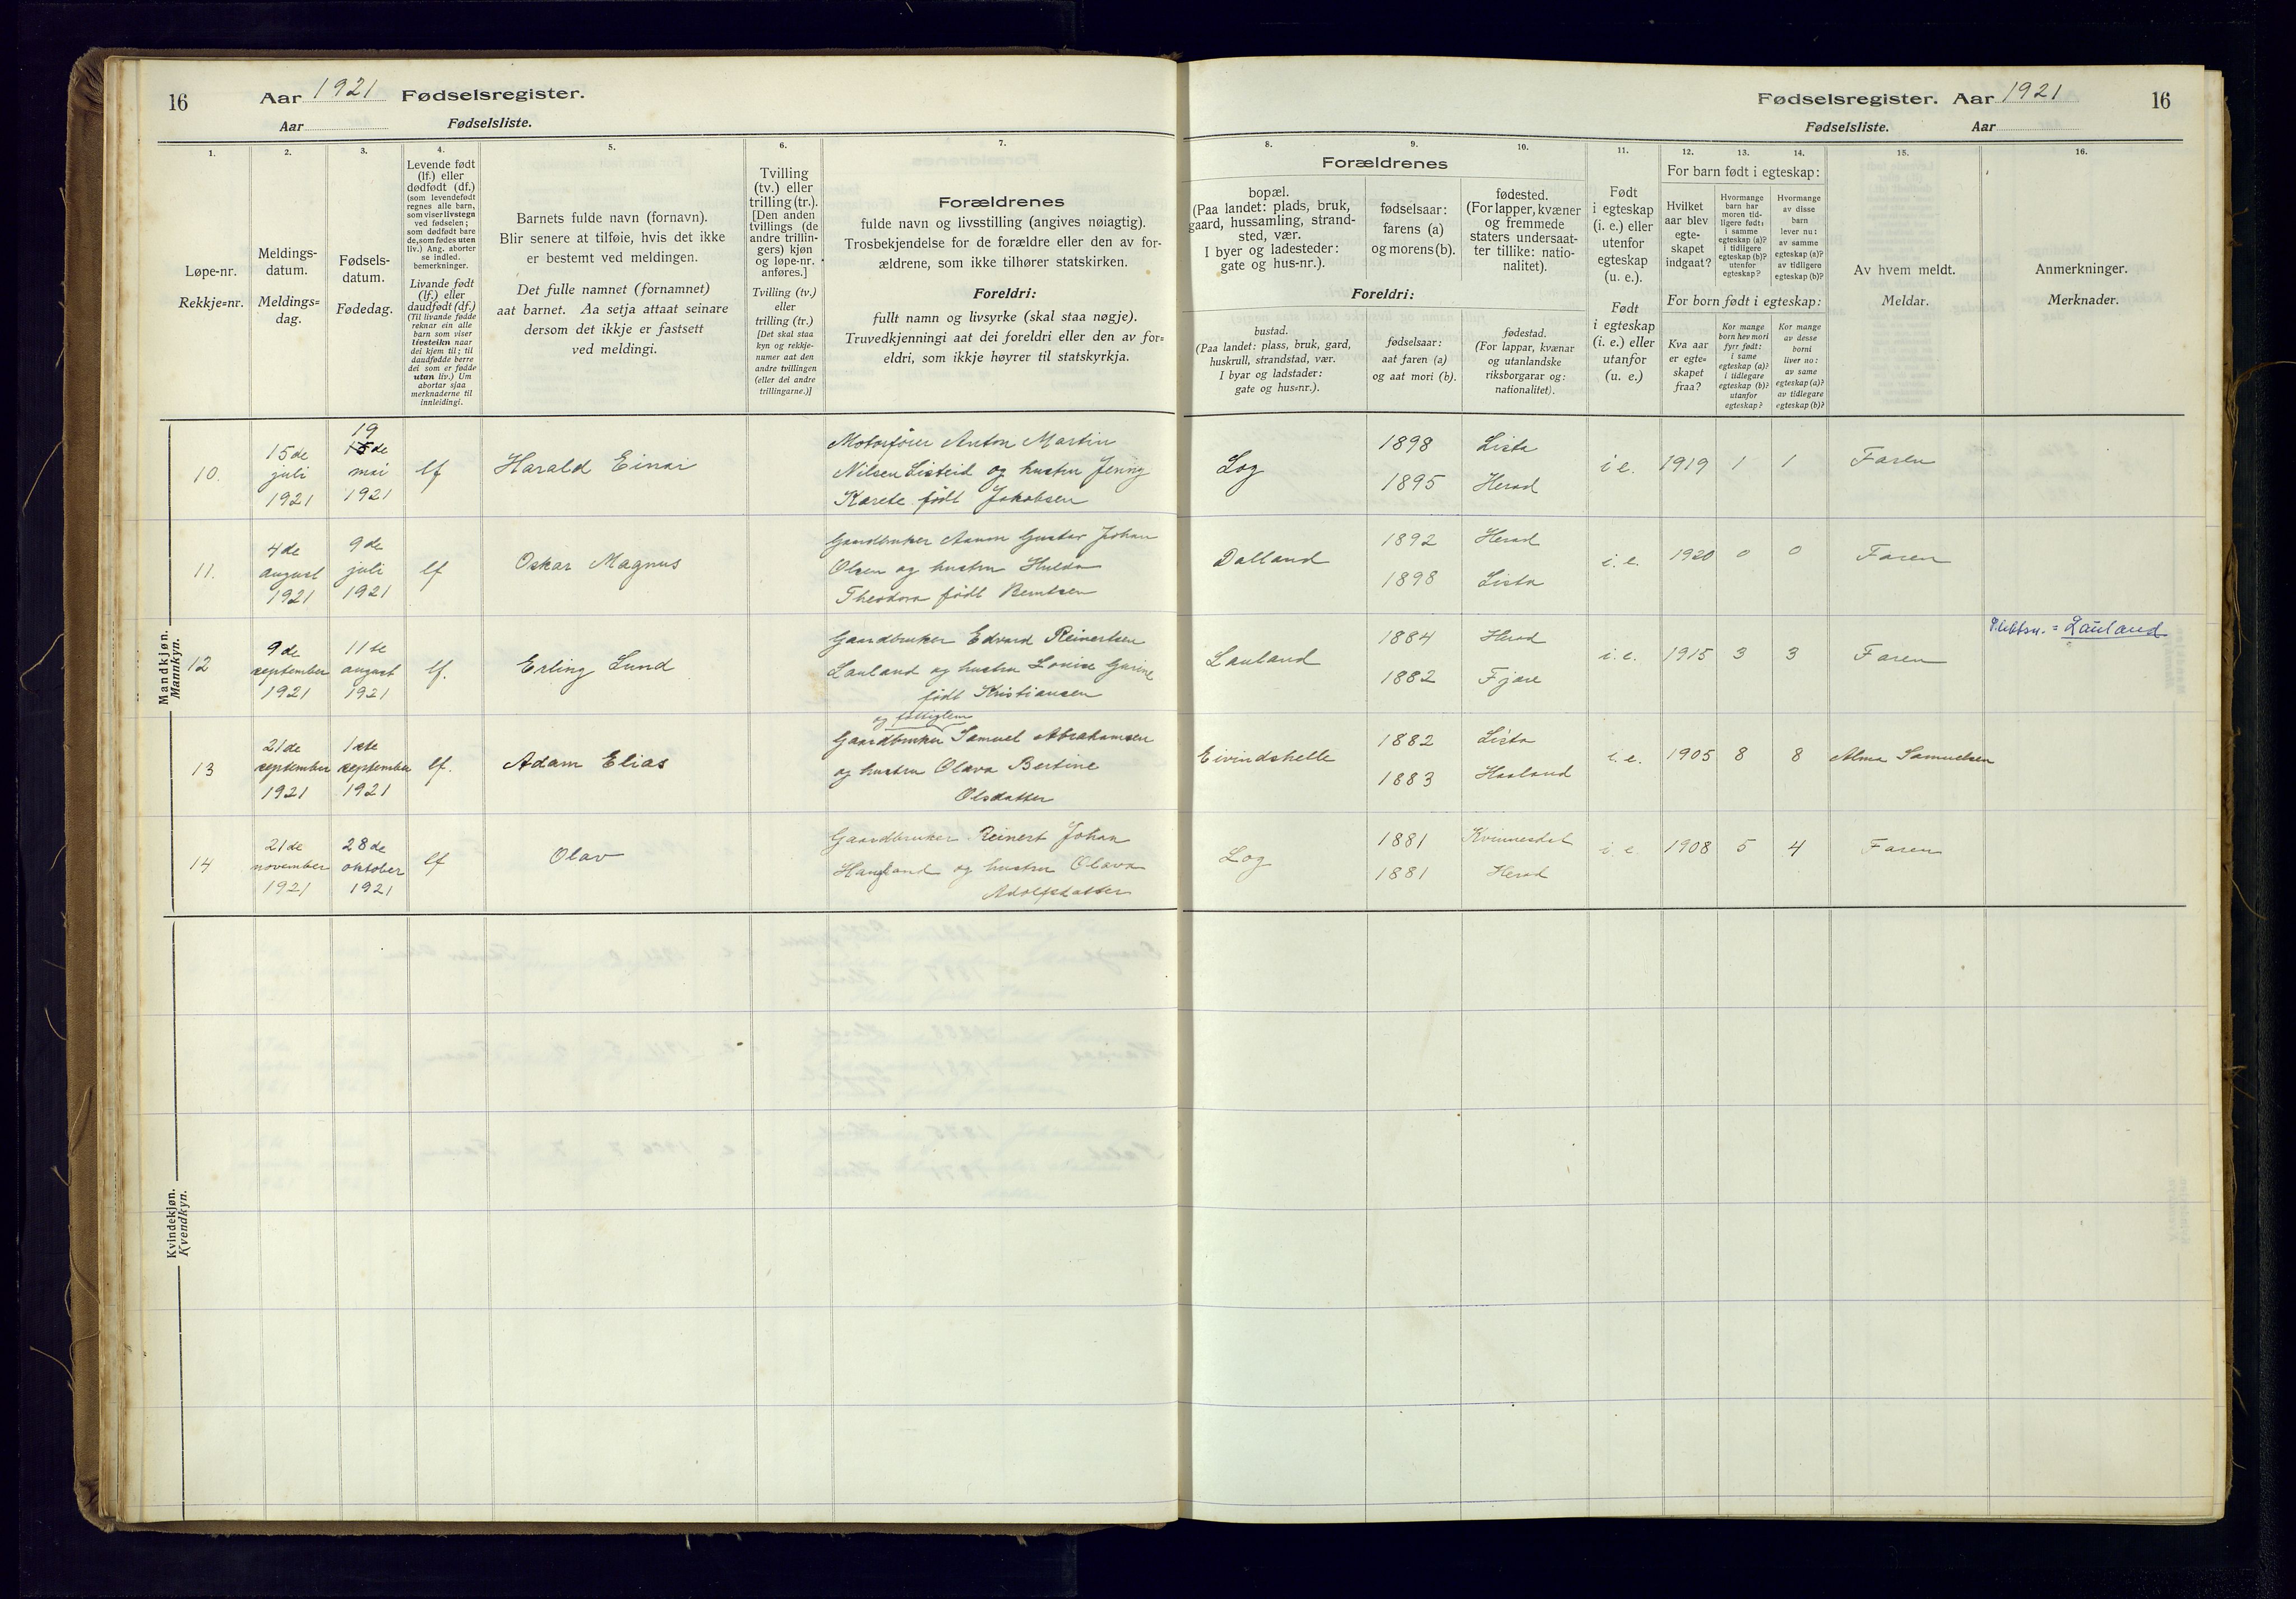 16
Aar 1921 Fødselsregister.
Aar Fødselsliste.
Fødselsregister. Aar 1921
16
Fødselsliste. Aar
1.
Løpe-nr.
Rekkje=nr.
2.
Meldings-
datum.
Meldings=
dag.
3.
Fødsels-
datum.
Fødedag.
4.
Levende født
(lf.) eller
dødfødt (df.)
(som levendefødt
regnes alle barn,
som viser livstegn
ved fødselen;
som dødfødt bare
de, som fødes uten
liv.) Ang. aborter
se indled.
bemerkninger.
Livande født
(lf.) eller
daudfødt (df.)
(Til livande fødde
reknar ein alle
barn som viser
livsteikn naar
dei kjem til; til
daudfødde berre
dei som er fødde
utan liv.) Um
abortar sjaa
merknaderne til
innleidingi.
5.
Barnets fulde navn (fornavn).
Blir senere at tilføie, hvis det ikke
er bestemt ved meldingen.
Det fulle namnet (fornamnet)
aat barnet. Aa setja attaat seinare
dersom det ikkje er fastsett
ved meldingi.
6.
Tvilling
(tv.) eller
trilling (tr.).
[Den anden
tvillings (de
andre trillin-
gers) kjøn
og løpe-nr.
anføres.]
Tvilling (tv.)
eller
trilling (tr.)
[Det skal staa
kyn og rekkje-
numer aat den
andre tvillingen
(eller dei andre
trillingarne.)]
7.
Forældrenes
fulde navn og livsstilling (angives nøiagtig).
Trosbekjendelse for de forældre eller den av for-
ældrene, som ikke tilhører statskirken.
Foreldri:
fullt namn og livsyrke (skal staa nøgje).
Truvedkjenningi aat dei foreldri eller den av for=
eldri, som ikkje høyrer til statskyrkja.
8.
9.
10.
Forældrenes
bopæl.
(Paa landet: plads, bruk,
gaard, hussamling, strand-
sted, vær.
I byer og ladesteder:
gate og hus-nr.).
fødselsaar:
farens (a)
og morens (b).
fødested.
(For lapper, kvæner
og fremmede
staters undersaat-
ter tillike: natio-
nalitet).
Foreldri:
bustad.
(Paa landet: plass, bruk, gard,
huskrull, strandstad, vær.
I byar og ladstader:
gate og hus=nr.).
fødselsaar:
aat faren (a)
og aat mori (b).
fødestad.
(For lappar, kvænar
og utanlandske
riksborgarar og:
nationalitet).
11.
Født
i egteskap
(i. e.) eller
utenfor
egteskap
(u. e.).
Født
i egteskap
(i. e.) eller
utanfor
(u. e.)
12.
13.
14.
For barn født i egteskap:
Hvilket
aar blev
egte-
skapet
indgaat?
Hvormange
barn har
moren tid-
ligere født:
i samme
egteskap (a)?
i tidligere
egteskap (b)?
utenfor
egteskap?
Hvormange
av disse
barn
lever nu:
av samme
egteskap (a)?
av tidligere
egteskap (b)?
For born født i egteskap:
Kva aar
er egte=
skapet
fraa?
Kor mange
born hev mori
fyrr født:
i same
egteskap (a)?
i tidlegare
egteskap (b)?
utanfor
egteskap?
Kor mange
av desse
borni
liver no:
av same
egteskap (a)?
av tidlegare
egteskap (b)?
15.
Av hvem meldt.
Meldar.
16.
Anmerkninger.
Merknader.
Mandkjøn.
Mannkyn.
10. 15de juli 1921 19 15de mai 1921 lf Harald Einar
Motorfører Anton Martin
Nilsen Listeid og hustru Jenny
Karete født Jakobsen
Log 1898 Lista i e. 1919 1 1 Faren
1895 Herad
11. 4de august 1921 9de juli 1921 lf Oskar Magnus
Gaardbruker Aanon Gustav Johan
Olsen og hustru Hulda
Theodora født Berntsen
Dalland 1892 Herad i. e. 1920 0 0 Faren
1898 Lista
12 9de september 1921 11te august 1921 lf. Erling Lund
Gaardbruker Edvard Reinertsen
Lauland og hustru Lovise Garine
født Kristiansen
Lauland 1884 Herad i. e. 1915 3 3 Faren = Lauland
1882 Fjære
13 21de september 1921 1ste september 1921 lf. Adam Elias
og fattigtem
Gaardbruker Samuel Abrahamsen
og hustru Olava Bertine
Olsdatter
Eivindshelle 1882 Lista i. e. 1905 8 8 Alma Samuelsen
1883 Haaland
14 21de november 1921 28de oktober 1921 lf Olav
Gaardbruker Reinert Johan
Haugland og hustru Olava
Adolfsdatter
Log 1881 Kvinnesdal i e. 1908 5 4 Faren
1881 Herad
Kvindekjøn.
Kvendkyn.